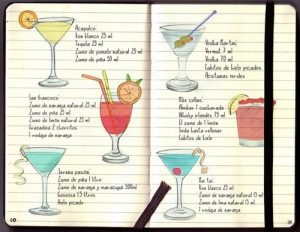 Acapulco:
Ron blanco 25 ml
Tequila 25 ml
Zumo de pomelo natural 25 ml
Zumo de piña 50 ml
San francisco:
Zumo de naranja natural 25 ml
Zumo de piña 25 ml
Zumo de limón natural 25 ml
Granadina 2 chorritos
1 rodaja de naranja
Serena pasión:
Zumo de piña 1 litro
Zumo de naranja y maracuyá 500ml
Gaseosa 1.5 litros
Hielo picado
10
Vodka Martini:
Vermut 7 ml
Vodka 70 ml
Cubitos de hielo picados
Aceitunas verdes
Mike collins:
Azúcar 1 cucharada
Whisky irlandés 75 ml
El zumo de 1 limón
Soda hasta rellenar
Cubitos de hielo
Mai tai:
Ron blanco 25 ml
Zumo de naranja natural 15 ml
Zumo de lima natural 15 ml
1 rodaja de naranja